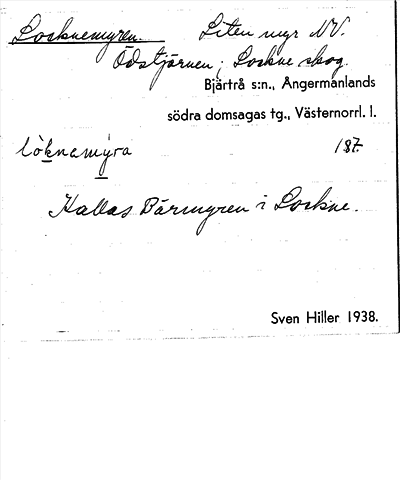 Locknemyren. Liten myr NV.
Ödstjärnen; Lockne skog.
Bjärtrå s:n., Ångermanlands
södra domsagas tg., Västernorrl. l.
lòknamýra 187.
Kallas Bärmyren i Lockne.
Sven Hiller 1938.